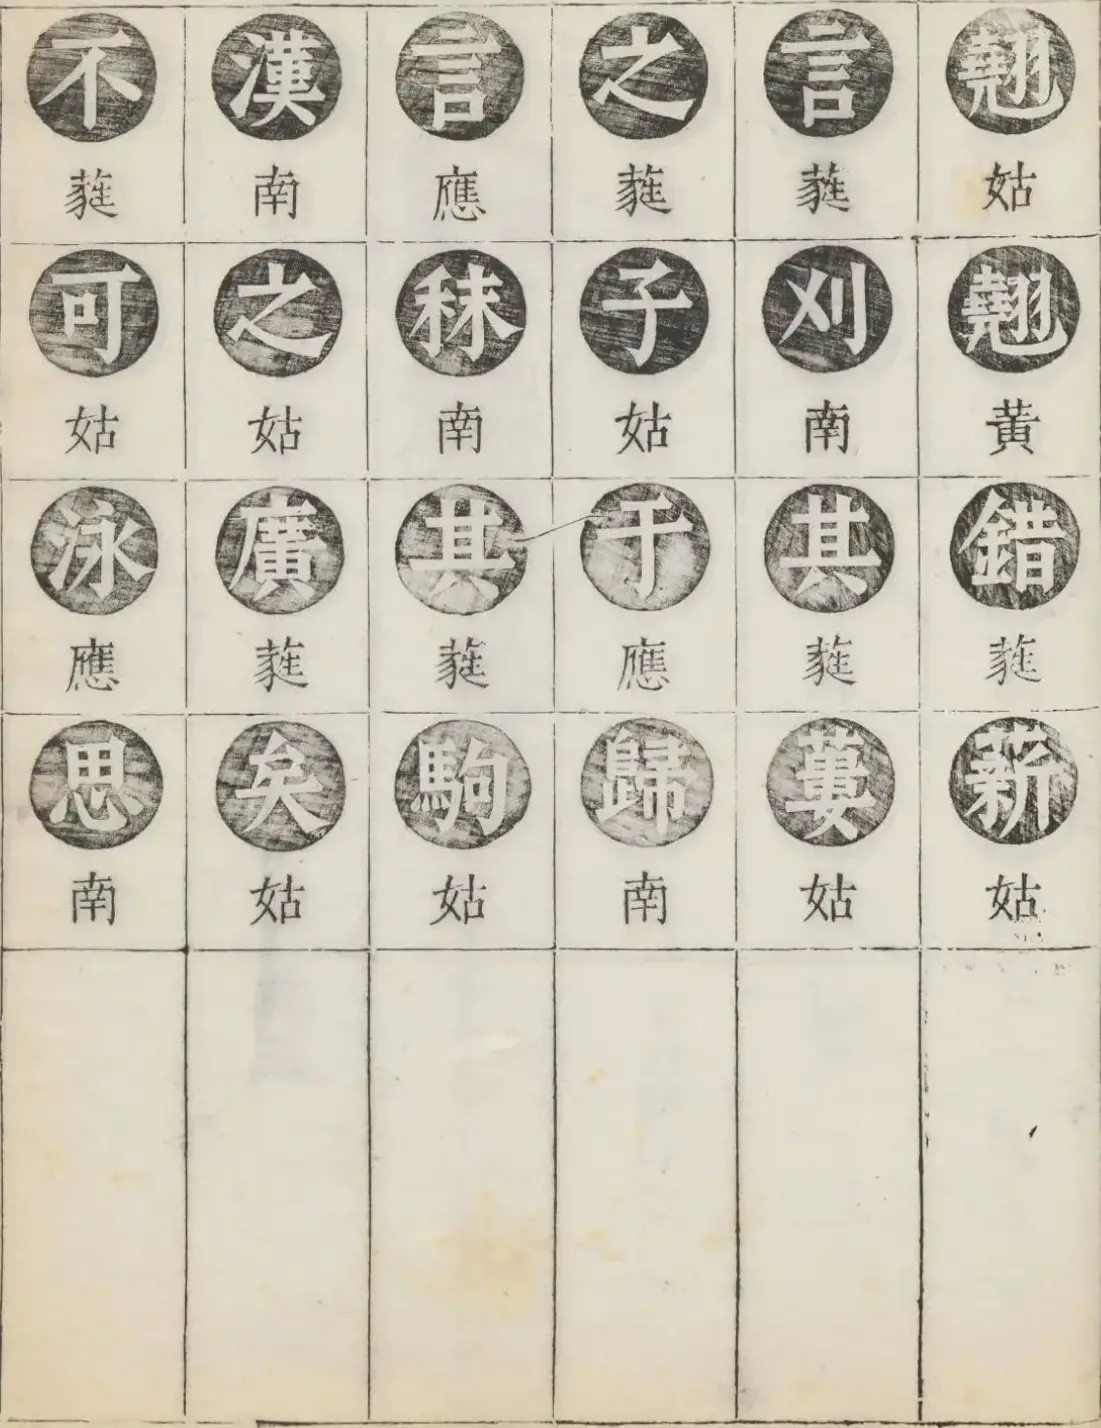 翹姑翹黄錯蕤薪姑
言蕤刈南其蕤蔞姑
之蕤子姑于應歸南
言應秣南其蕤駒姑
漢南之姑廣蕤矣姑
不蕤可姑泳應思南